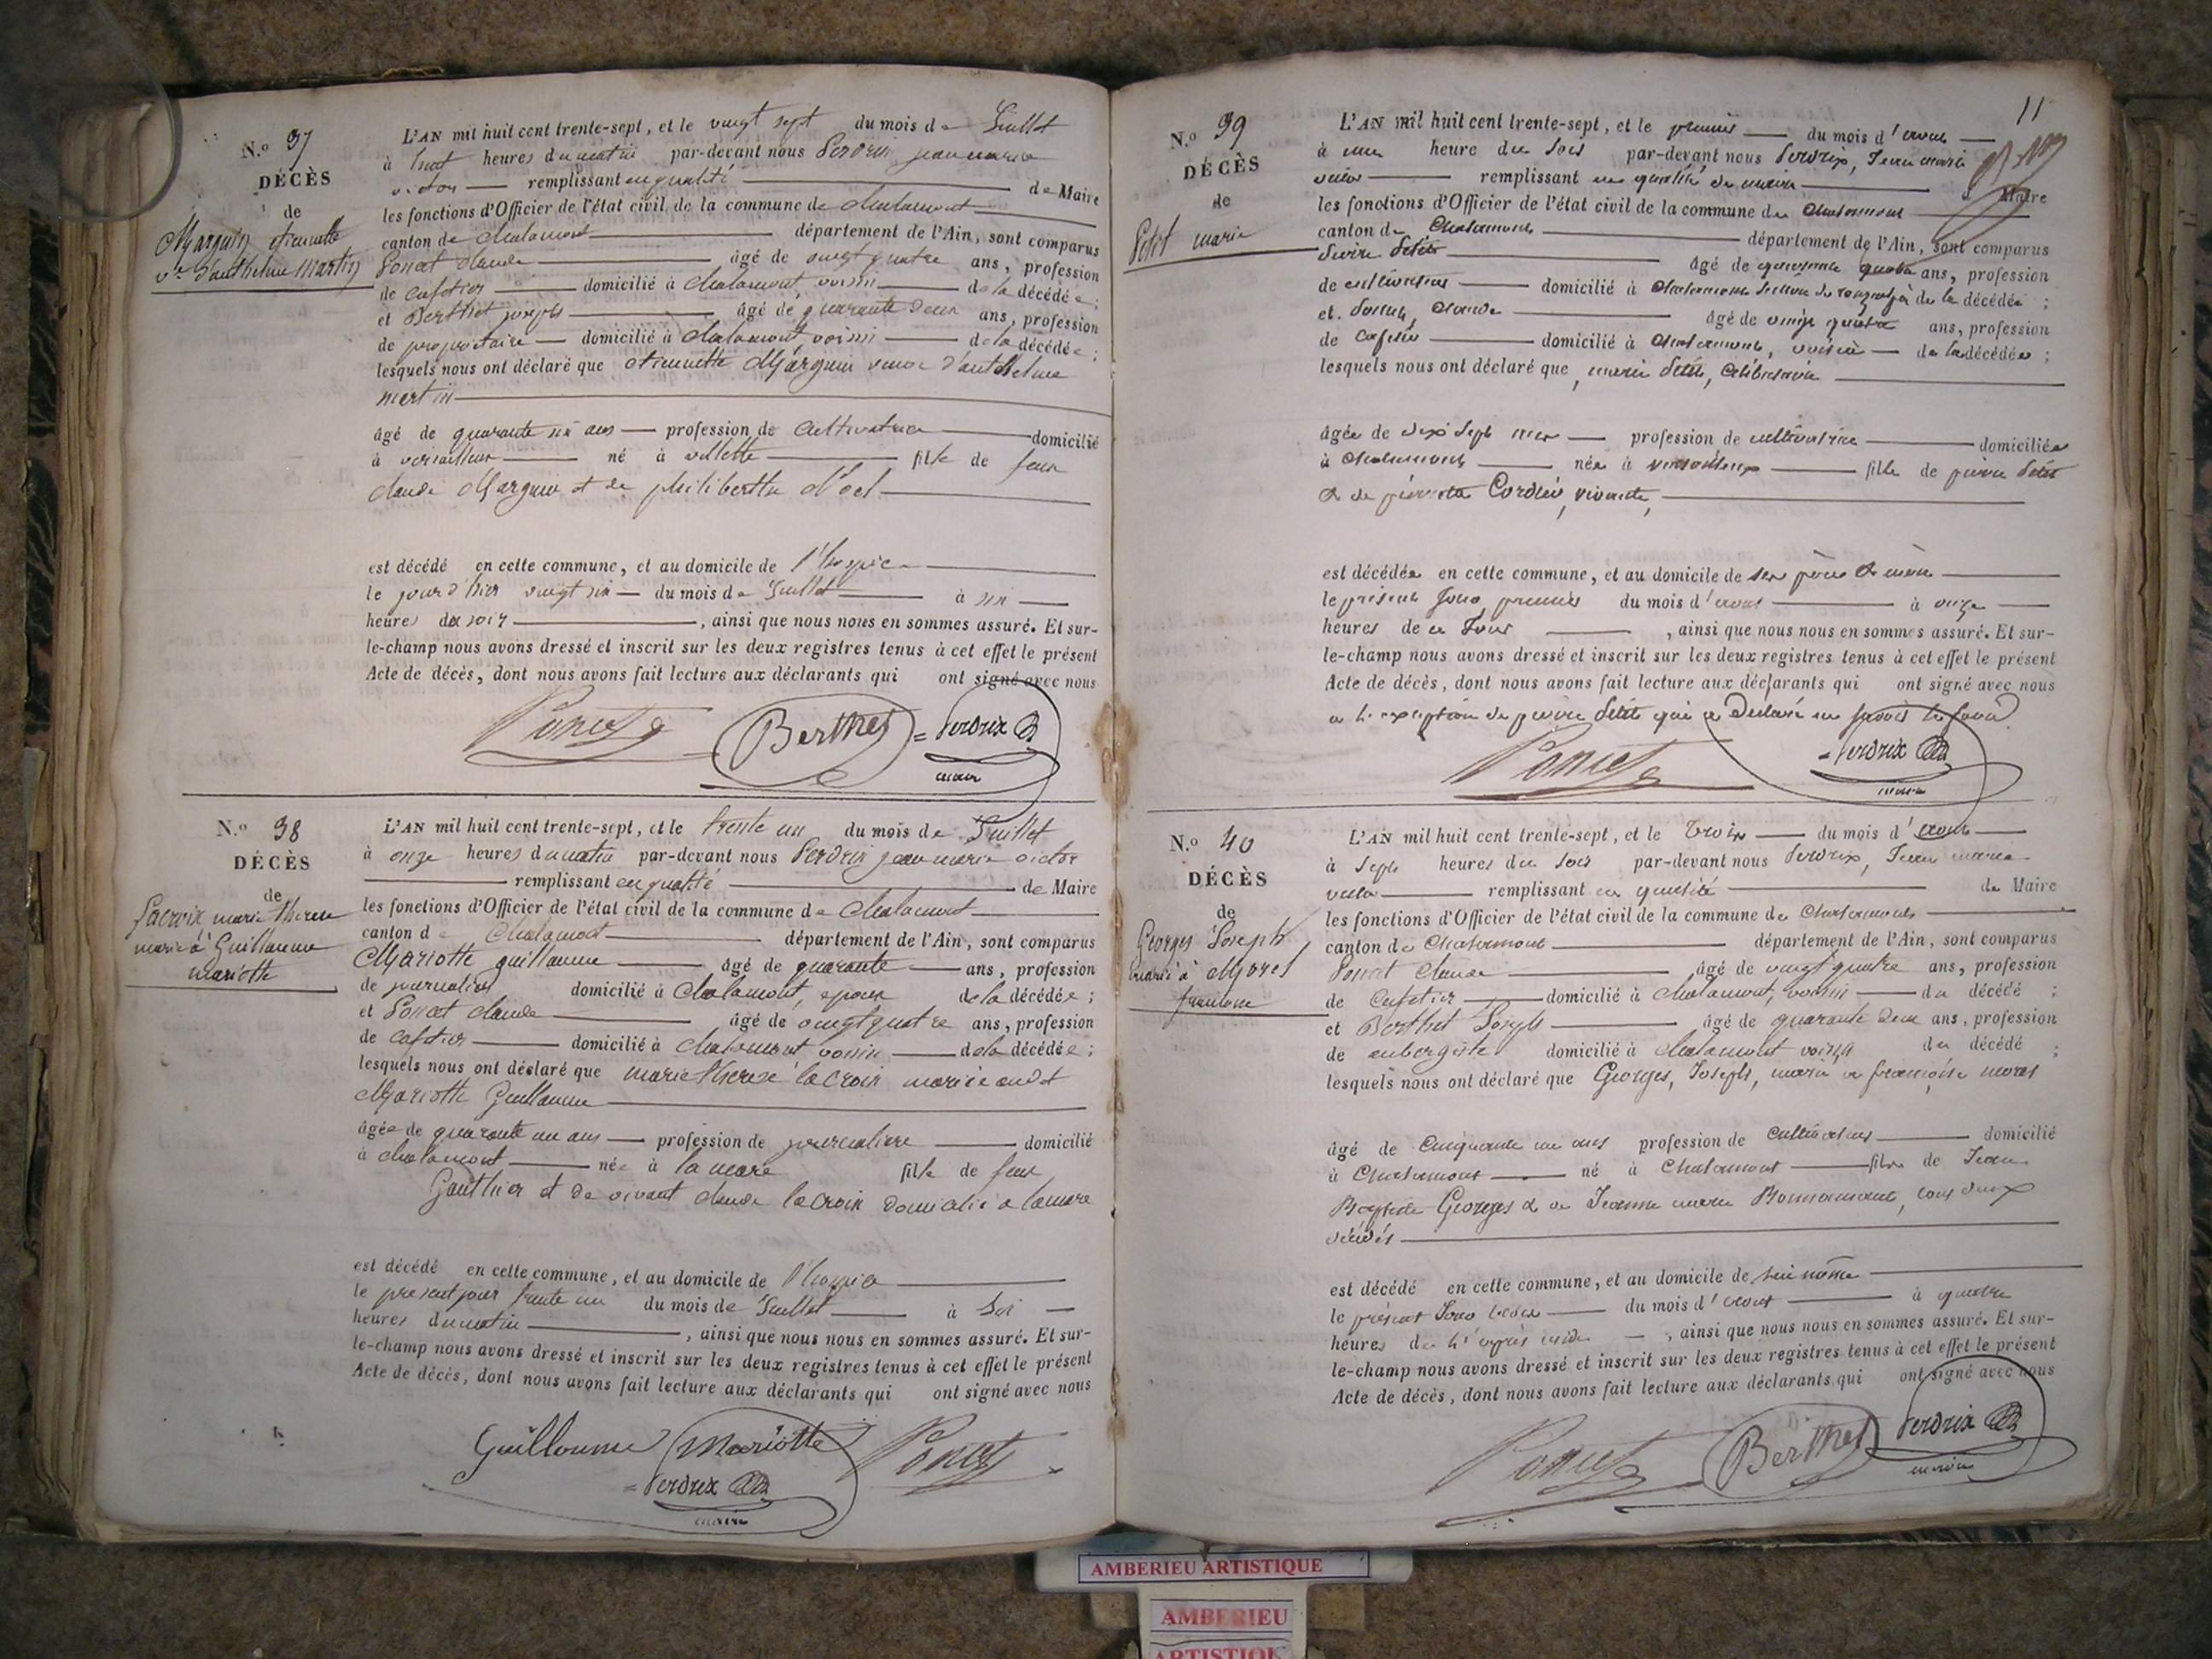 N.o 37
DÉCÈS
de
Marguin etiennette
ve d'anthelme Martin
L'AN mil huit cent trente-sept, et le vingt sept du mois de Juillet
à huit heures du matin par-devant nous Perdrix jean marie
victor remplissant en qualité de Maire
les fonctions d'Officier de l'état civil de la commune de Chalamont
canton de Chalamont département de l'Ain, sont comparus
Poncet Claude âgé de vingt quatre ans, profession
de cafetier domicilié à Chalamont, voisin de la décédée;
et Berthet joseph âgé de quarante deux ans, profession
de propriétaire domicilié à Chalamont, voisin de la décédée;
lesquels nous ont déclaré que etiennette Marguin veuve d'anthelme
martin
âgé de quarante six ans profession de Cultivatrice domicilié
à versailleux né à villette fille de feux
Claude Marguin et de philiberthe
est décédé en cette commune, et au domicile de l'hospice
le jour d'hier vingt six du mois de Juillet à six
heures du soir, ainsi que nous nous en sommes assuré. Et sur-
le-champ nous avons dressé et inscrit sur les deux registres tenus à cet effet le présent
Acte de décès, dont nous avons fait lecture aux déclarants qui ont signé avec nous
Poncet Berthet Perdrix
maire
N.o 38
DÉCÈS
de
Lacroix marie therese
mariée à Guillaume
mariotte
L'AN mil huit cent trente-sept, et le trente un du mois de Juillet
à onze heures du matin par-devant nous Perdrix jean marie victor
remplissant en qualité de Maire
les fonctions d'Officier de l'état civil de la commune de Chalamont
canton de Chalamont département de l'Ain, sont comparus
Mariotte guillaume âgé de quarante ans, profession
de journalier domicilié à Chalamont, epoux de la décédée;
et Poncet claude âgé de vingt quatre ans, profession
de cafetier domicilié à Chalamont voisin de la décédée;
lesquels nous ont déclaré que marie therese lacroix mariée audit
Mariotte Guillaume
âgée de quarante un ans profession de journaliere domicilié
à chalamont née à la mare fille de feux
Gauthier et de vivant claude lacroix domicilié a lamare
est décédé en cette commune, et au domicile de l'hospice
le present jour trente un du mois de Juillet à
heures du matin, ainsi que nous nous en sommes assuré. Et sur-
le-champ nous avons dressé et inscrit sur les deux registres tenus à cet effet le présent
Acte de décès, dont nous avons fait lecture aux déclarants qui ont signé avec nous
Guillaume Mariotte Poncet
Perdrix
maire
11
N.o 39
DÉCÈS
de
Petit marie
L'AN mil huit cent trente-sept, et le premier du mois d'aout
à une heure du soir par-devant nous Perdrix, Jean marie
victor remplissant en qualité de maire Maire
les fonctions d'Officier de l'état civil de la commune de Chalamont
canton de Chalamont département de l'Ain, sont comparus
Pierre Petit âgé de quarante quatre ans, profession
de cultivateur domicilié à Chalamont de la décédée;
et Poncet, Claude âgé de vingt quatre ans, profession
de Cafetier domicilié à Chalamont, voisin de la décédée;
lesquels nous ont déclaré que, marie Petit, Célibataire
âgée de dix sept ans profession de cultivatrice domiciliée
à Chalamont née à versailleux fille de pierre Petit
& de pierrette Cordier, vivants,
est décédée en cette commune, et au domicile de ses père & mère
le présent Jour, premier du mois d'aout à onze
heures de ce Jour, ainsi que nous nous en sommes assuré. Et sur-
le-champ nous avons dressé et inscrit sur les deux registres tenus à cet effet le présent
Acte de décès, dont nous avons fait lecture aux déclarants qui ont signé avec nous
a l'exception de pierre Petit qui a Déclaré ne savoir le faire
Poncet Perdrix
maire
N.o 40
DÉCÈS
de
Georges Joseph
marié à Morel
francoise
L'AN mil huit cent trente-sept, et le trois du mois d'aout
à sept heures du soir par-devant nous Perdrix, Jean marie
victor remplissant en qualité de Maire
les fonctions d'Officier de l'état civil de la commune de Chalamont
canton de Chalamont département de l'Ain, sont comparus
Poncet Claude âgé de vingt quatre ans, profession
de Cafetier domicilié à Chalamont, voisin du décédé;
et Berthet Joseph âgé de quarante deux ans, profession
de aubergiste domicilié à Chalamont voisin du décédé;
lesquels nous ont déclaré que Georges, Joseph, marié a françoise morel
âgé de Cinquante un ans profession de Cultivateur domicilié
à Chalamont né à Chalamont fils de Jean
Baptiste Georges & de Jeanne marie Bonnamant, tous deux
décédés
est décédé en cette commune, et au domicile de lui même
le présent Jour trois du mois d'aout à quatre
heures de l'après midi, ainsi que nous nous en sommes assuré. Et sur-
le-champ nous avons dressé et inscrit sur les deux registres tenus à cet effet le présent
Acte de décès, dont nous avons fait lecture aux déclarants qui ont signé avec nous
Poncet Berthet Perdrix
maire
AMBERIEU ARTISTIQUE
AMBERIEU
ARTISTIQUE